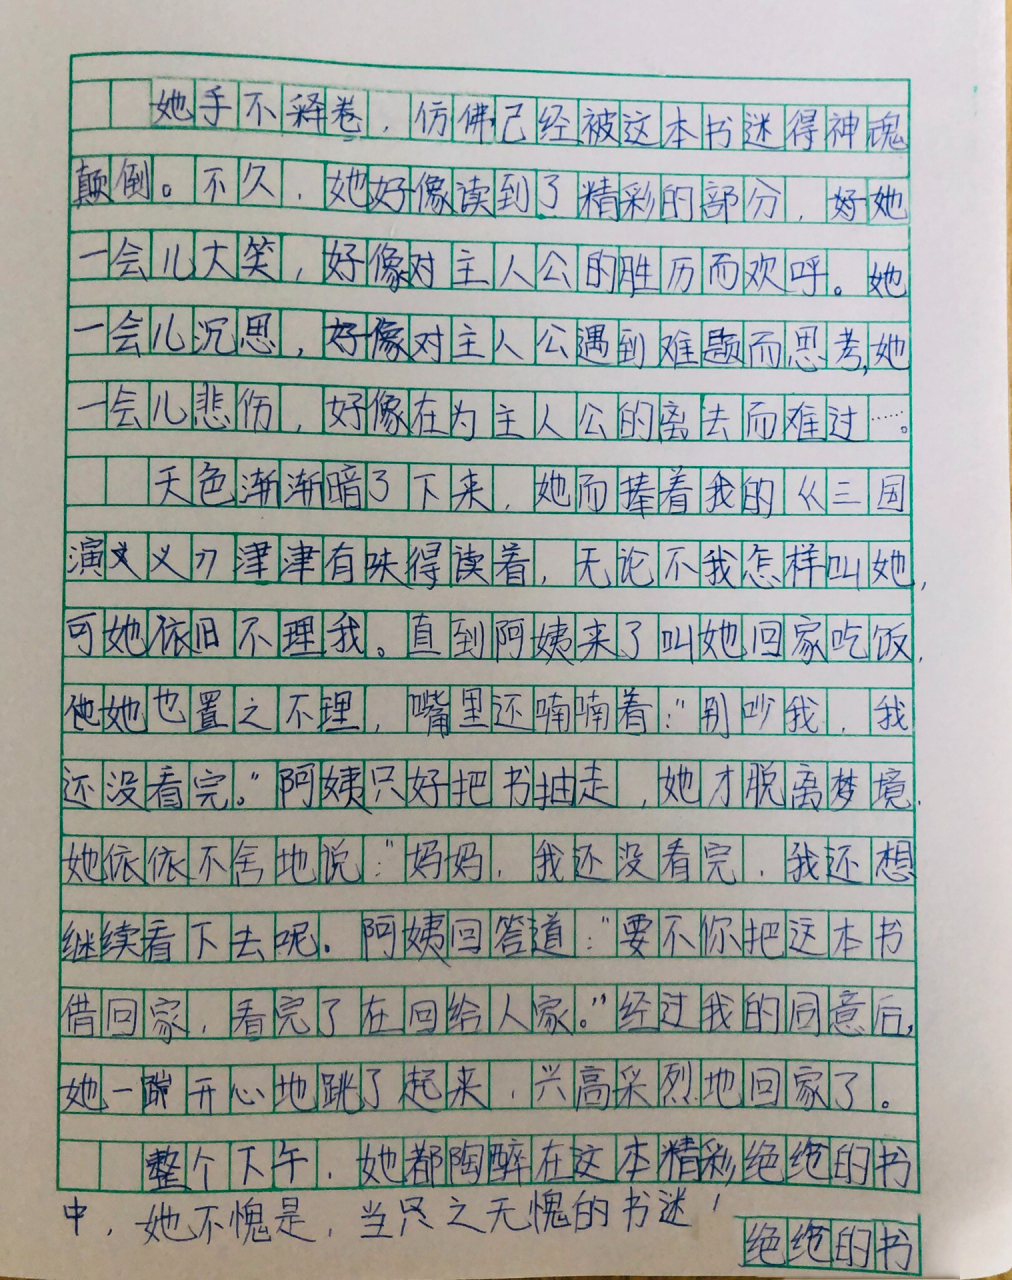 她手不释卷，仿佛己经被这本书迷得神魂
颠倒。不久，她好像读到了精彩的部分，好她
一会儿大笑，好像对主人公的胜历而欢呼。她
一会儿沉思，好像对主人公遇到难题而思考，她
一会儿悲伤，好像在为主人公的离去而难过……。
天色渐渐暗了下来，她而捧着我的《三国
演义》津津有味得读着，无论不我怎样叫她，
可她依旧不理我。直到阿姨来了叫她回家吃饭，
他她也置之不理，嘴里还喃喃着："别吵我，我
还没看完。"阿姨只好把书抽走，她才脱离梦境.
她依依不舍地说："妈妈，我还没看完，我还想
继续看下去呢。阿姨回答道："要不你把这本书
借回家，看完了在回给人家。"经过我的同意后，
她一蹦开心地跳了起来，兴高采烈地回家了。
整个下午，她都陶醉在这本精彩绝绝的书
中，她不愧是，当只之无愧的书迷！
绝绝的书